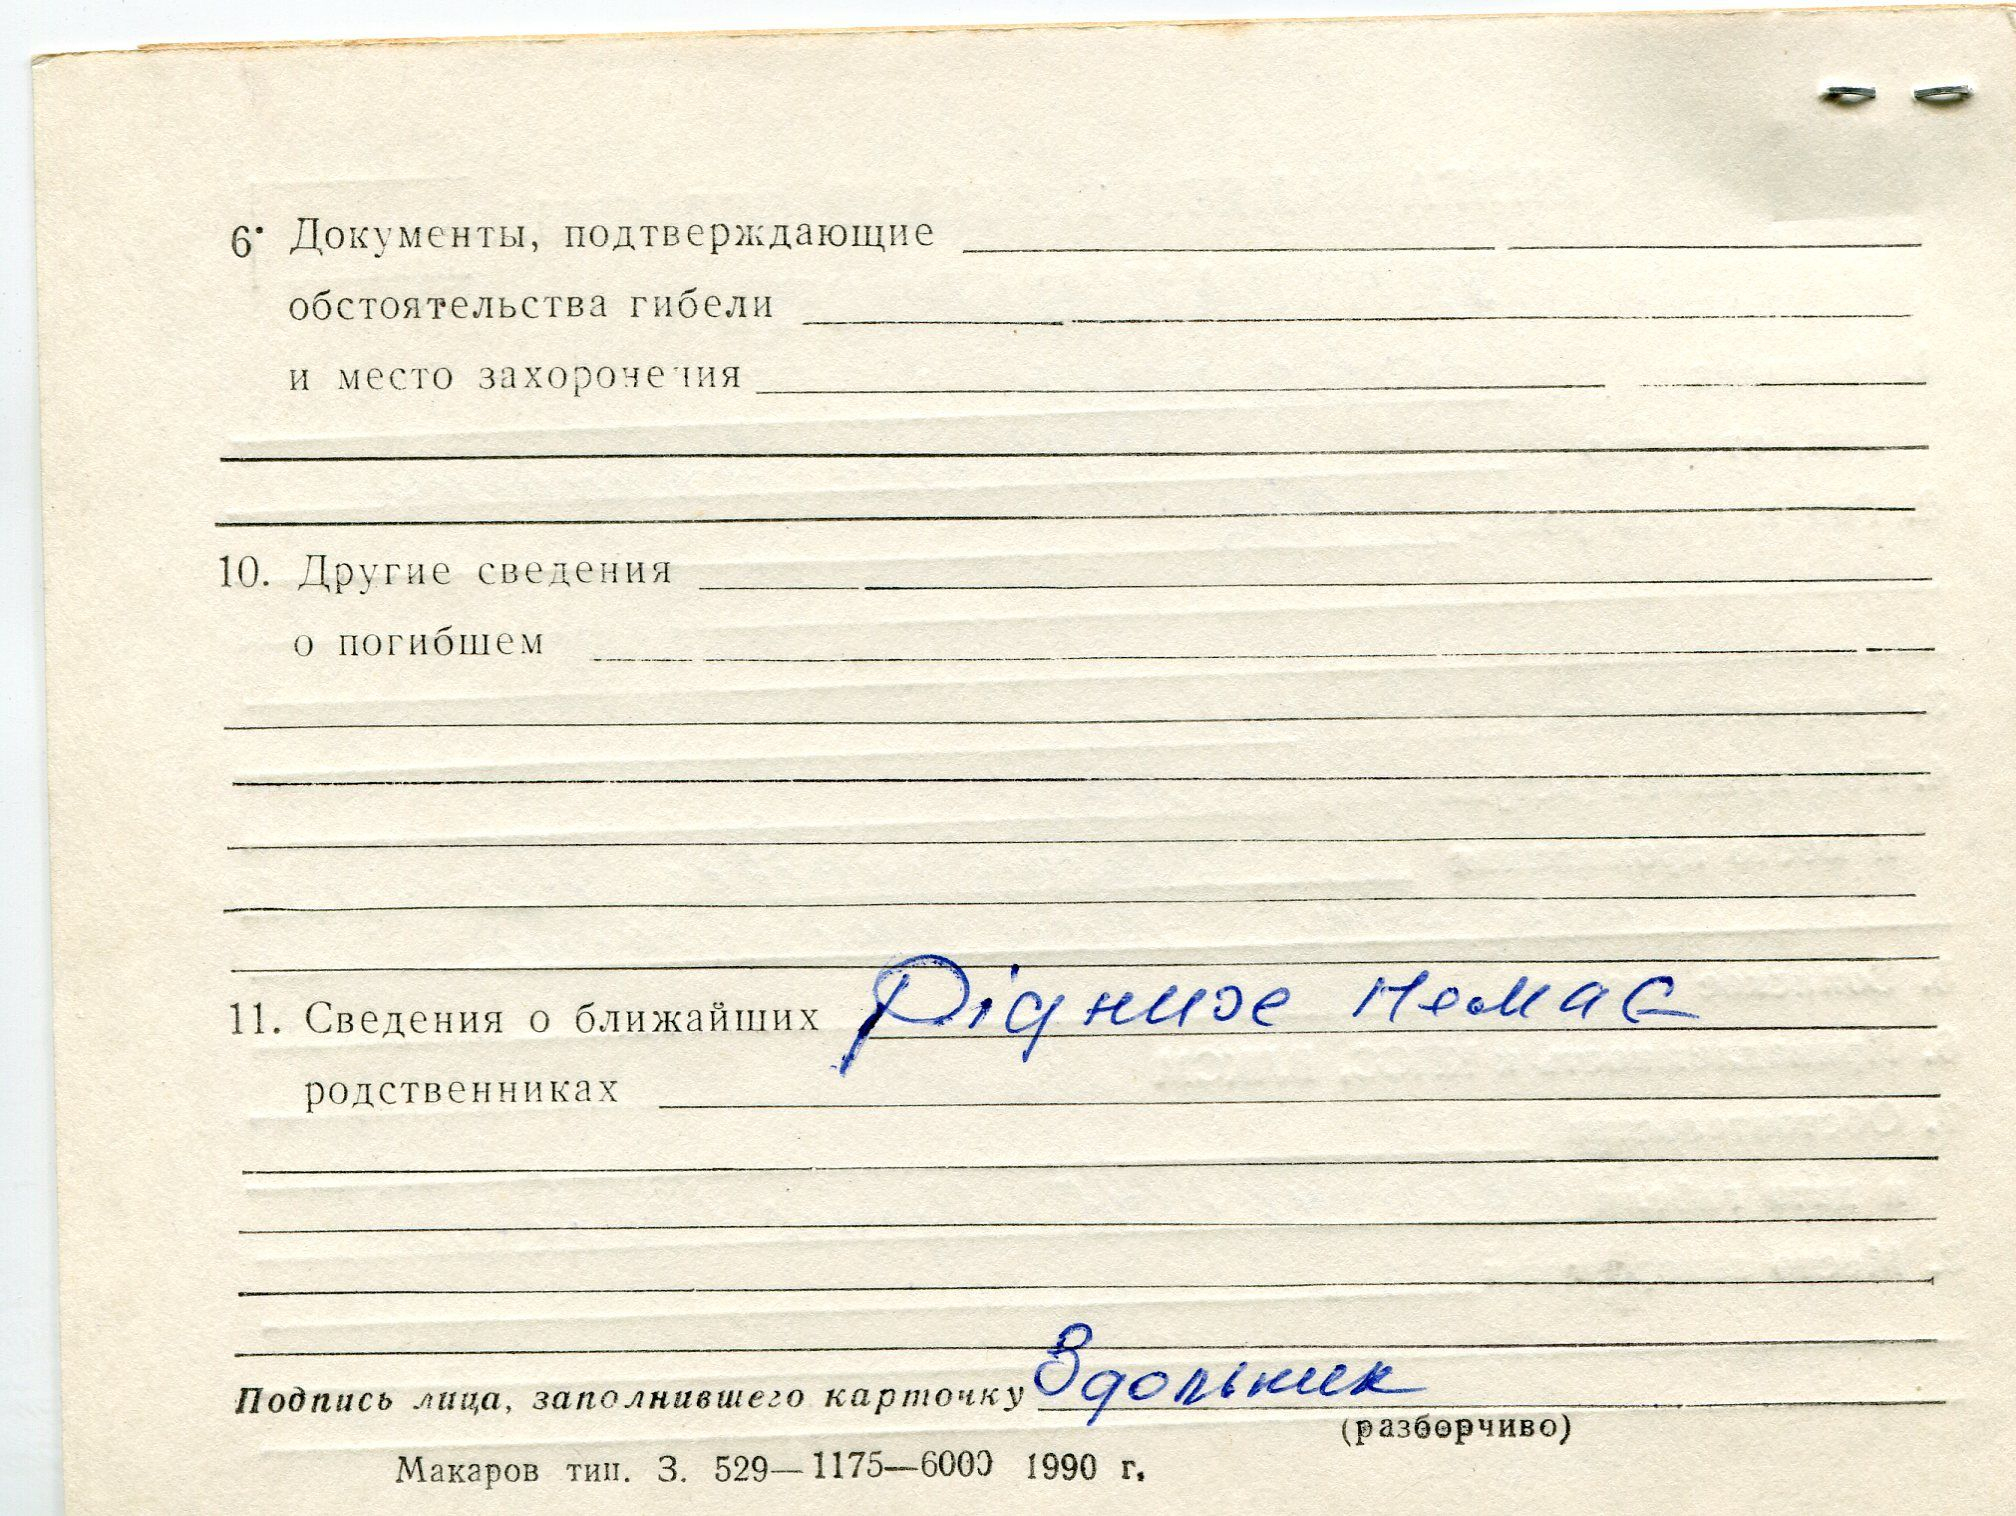 6. Документы, подтверждающие
обстоятельства гибели
и место захоронения
10. Другие сведения
о погибшем
11. Сведения о ближайших Рідних немає
родственниках
Подпись лица, заполнившего карточку Здольник
(разборчиво)
Макаров тип. З. 529—1175—6000 1990 г.